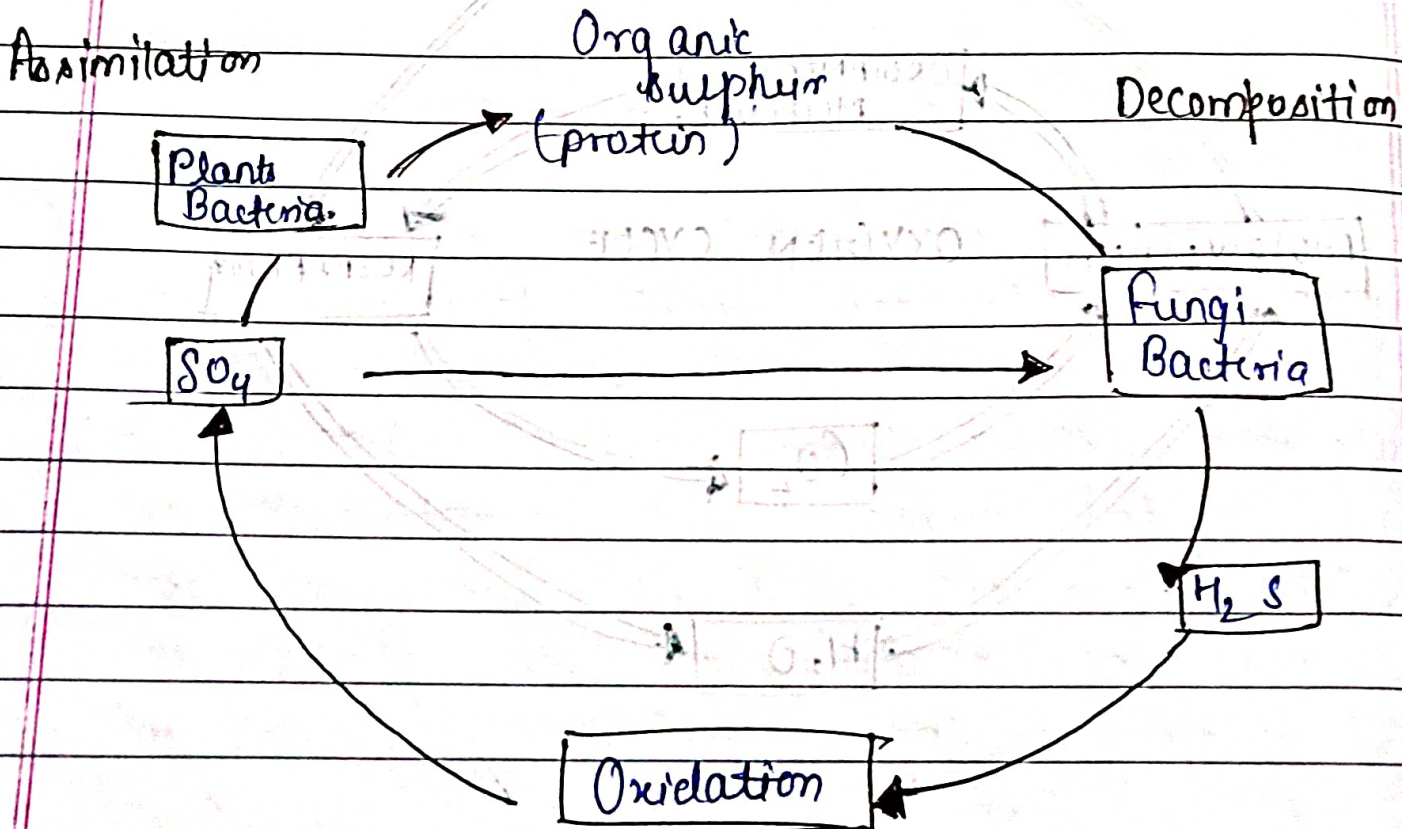 Assimilation
Organic
sulphur
(protein)
Decomposition
Plants
Bacteria.
Fungi
Bacteria
SO4
H2 S
Oxidation
OXYGEN CYCLE
H2O